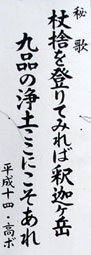 秘歌
杖捨を登りてみれば釈迦ヶ岳
九品の浄土ここにこそあれ
平成十四・高ボ